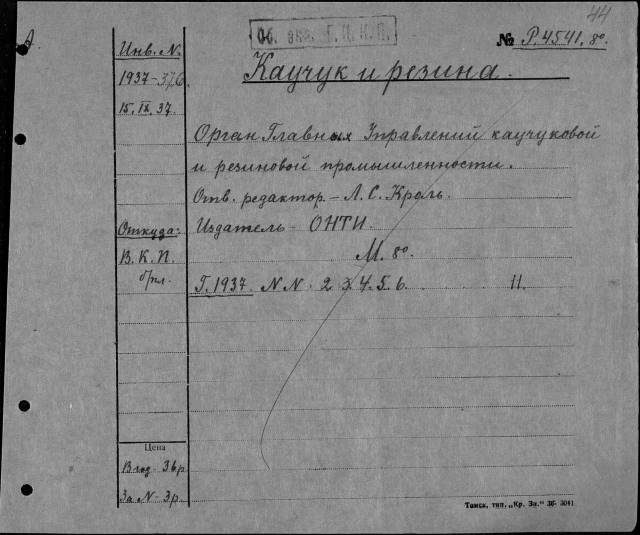 44
Об. экз. Г.П.К.П.
№ Р.4541, 8°
Каучук и резина.
Инв. N.
1937-376
15.IX.37.
Орган Главных Управлений каучуковой
и резиновой промышленности.
Отв. редактор - Л. С. Кроль.
Откуда:
Издатель - ОНТИ.
В. К. П.
М. 8°.
Г. 1937. N N 2 3. 4. 5. 6. 11.
Цена
В год 36 р
За N - 3 р.
Томск, тип. „Кр. Зн." 36- 3041